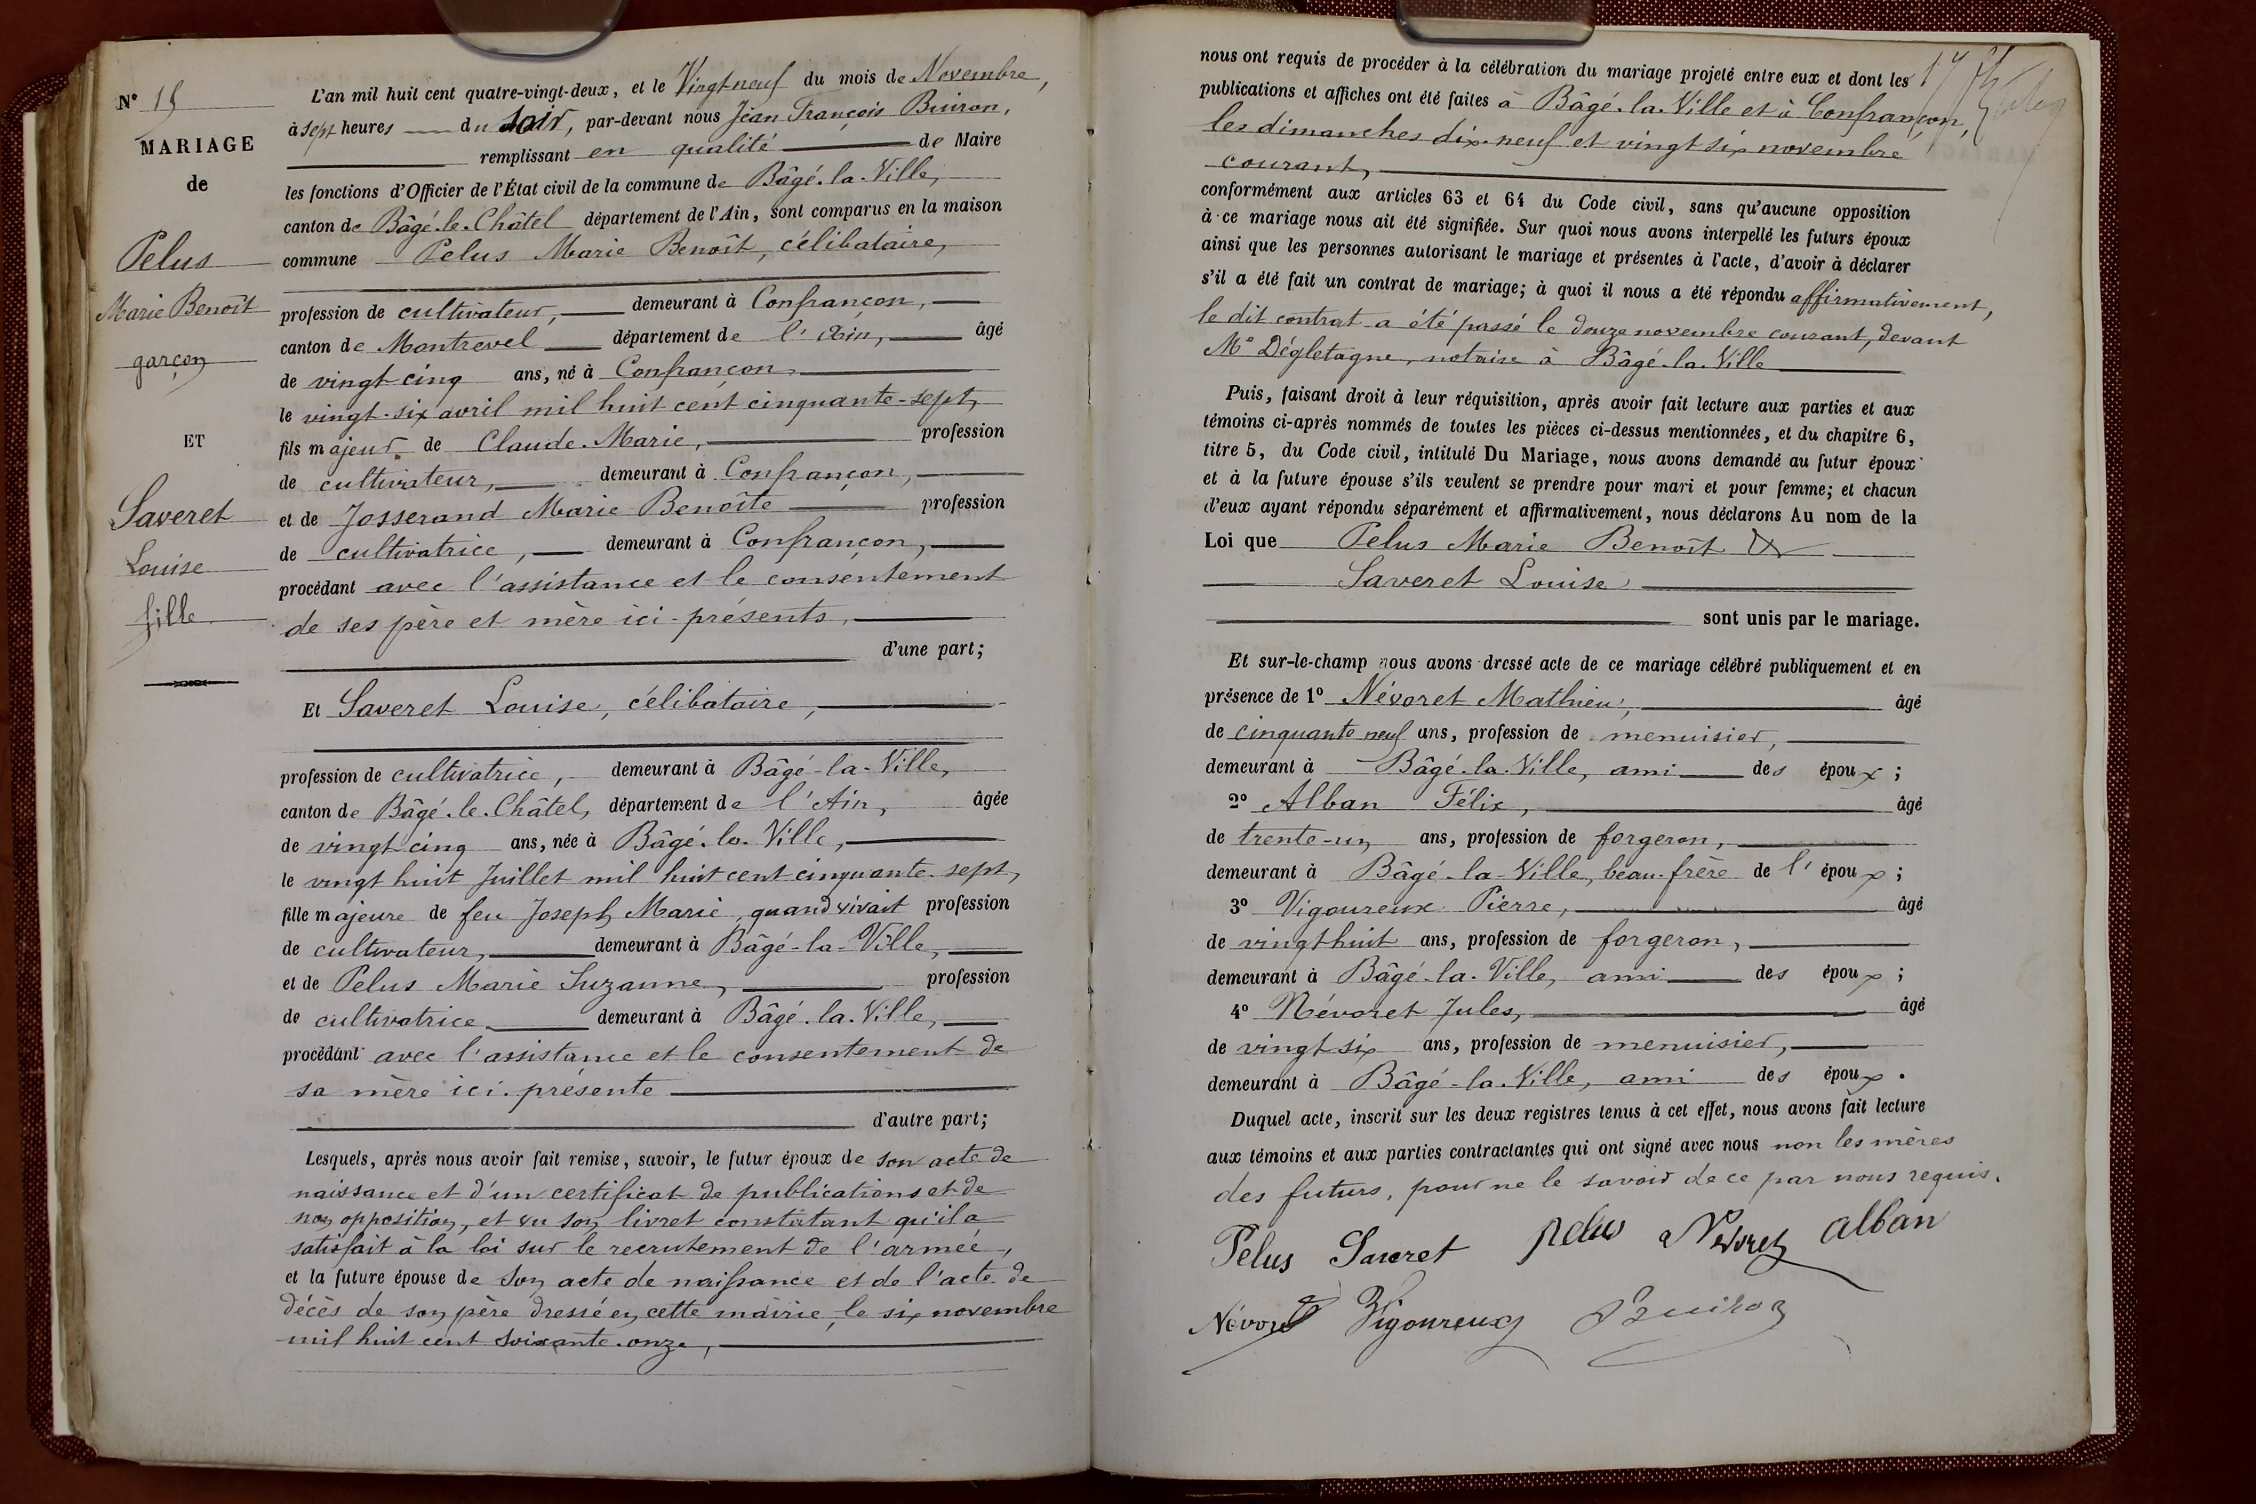 N° 15
MARIAGE
de
Pelus
Marie Benoît
garçon
ET
Saveret
Louise
fille
L'an mil huit cent quatre-vingt-deux, et le Vingt neuf du mois de Novembre,
à sept heures du soir, par-devant nous Jean François Buiron,
remplissant en qualité de Maire
les fonctions d'Officier de l'État civil de la commune de Bâgé-la-Ville,
canton de Bâgé-le-Châtel département de l'Ain, sont comparus en la maison
commune Pelus Marie Benoît, célibataire,
profession de cultivateur, demeurant à Confrançon,
canton de Montrevel département de l'Ain, âgé
de vingt cinq ans, né à Confrançon,
le vingt-six avril mil huit cent cinquante-sept,
fils majeur de Claude-Marie, profession
de cultivateur, demeurant à Confrançon,
et de Josserand Marie Benoîte profession
de cultivatrice, demeurant à Confrançon,
procédant avec l'assistance et le consentement
de ses père et mère ici-présents,
d'une part;
Et Saveret Louise, célibataire,
profession de cultivatrice, demeurant à Bâgé-la-Ville,
canton de Bâgé-le-Châtel, département de l'Ain, âgée
de vingt cinq ans, née à Bâgé-la-Ville,
le vingt huit Juillet mil huit cent cinquante-sept,
fille majeure de feu Joseph Marie, quand vivait profession
de cultivateur, demeurant à Bâgé-la-Ville,
et de Pelus Marie Suzanne, profession
de cultivatrice demeurant à Bâgé-la-Ville,
procédant avec l'assistance et le consentement de
sa mère ici-présente
d'autre part;
Lesquels, après nous avoir fait remise, savoir, le futur époux de son acte de
naissance et d'un certificat de publications et de
non opposition, et vu son livret constatant qu'il a
satisfait à la loi sur le recrutement de l'armée,
et la future épouse de son acte de naissance et de l'acte de
décès de son père dressé en cette mairie, le six novembre
mil huit cent soixante-onze,
nous ont requis de procéder à la célébration du mariage projeté entre eux et dont les
publications et affiches ont été faites à Bâgé-la-Ville et à Confrançon,
les dimanches dix-neuf et vingt six novembre
courant,
conformément aux articles 63 et 64 du Code civil, sans qu'aucune opposition
à ce mariage nous ait été signifiée. Sur quoi nous avons interpellé les futurs époux
ainsi que les personnes autorisant le mariage et présentes à l'acte, d'avoir à déclarer
s'il a été fait un contrat de mariage; à quoi il nous a été répondu affirmativement,
le dit contrat a été passé le douze novembre courant, devant
Me Dégletagne, notaire à Bâgé-la-Ville
Puis, faisant droit à leur réquisition, après avoir fait lecture aux parties et aux
témoins ci-après nommés de toutes les pièces ci-dessus mentionnées, et du chapitre 6,
titre 5, du Code civil, intitulé Du Mariage, nous avons demandé au futur époux
et à la future épouse s'ils veulent se prendre pour mari et pour femme; et chacun
d'eux ayant répondu séparément et affirmativement, nous déclarons Au nom de la
Loi que Pelus Marie Benoît &
Saveret Louise
sont unis par le mariage.
Et sur-le-champ nous avons dressé acte de ce mariage célébré publiquement et en
présence de 1° Névoret Mathieu, âgé
de cinquante neuf ans, profession de menuisier,
demeurant à Bâgé-la-Ville, ami des époux;
2° Alban Félix, âgé
de trente-un ans, profession de forgeron,
demeurant à Bâgé-la-Ville, beau-frère de l'époux;
3° Vigoureux Pierre, âgé
de vingt huit ans, profession de forgeron,
demeurant à Bâgé-la-Ville, ami des époux;
4° Névoret Jules, âgé
de vingt six ans, profession de menuisier,
demeurant à Bâgé-la-Ville, ami des époux.
Duquel acte, inscrit sur les deux registres tenus à cet effet, nous avons fait lecture
aux témoins et aux parties contractantes qui ont signé avec nous non les mères
des futurs, pour ne le savoir de ce par nous requis.
Pelus Saveret pelus Névoret alban
Névoret Vigoureux Buiron